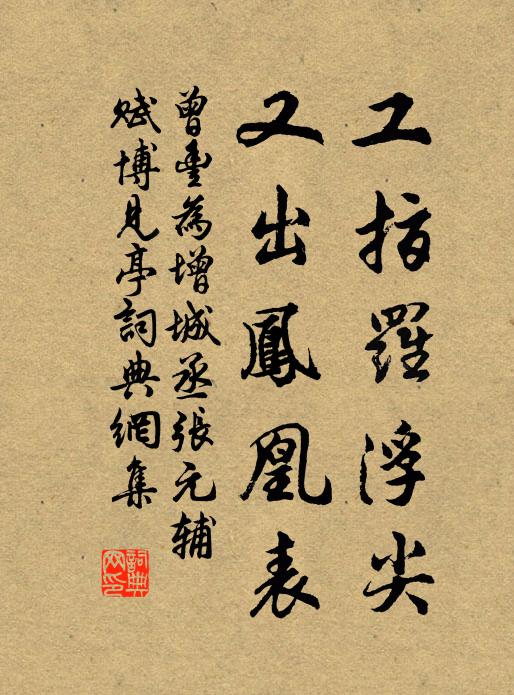 工指羅浮尖
又出鳳凰表
曾豐為增城丞張元輔
賦博見亭詞典網集
詞典網印